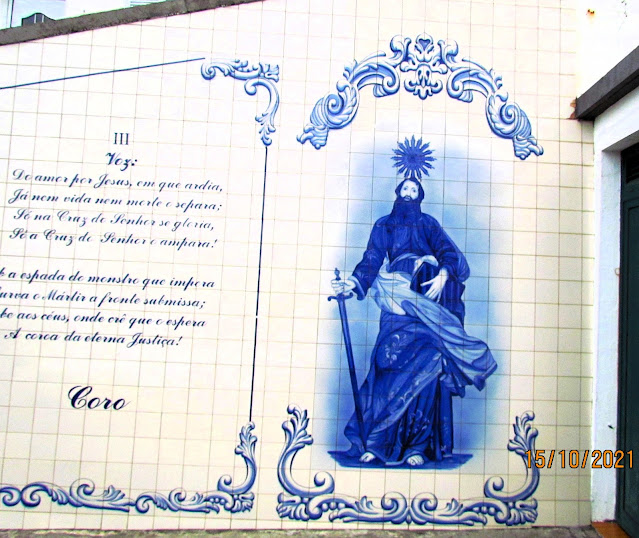 III
Voz:
De amor por Jesus, em que ardia,
Já nem vida nem morte o separa;
Só na Cruz do Senhor se gloria,
Só a Cruz do Senhor o ampara!
a espada do monstro que impera
o Mártir a fronte submissa;
aos céus, onde crê que o espera
A coroa da eterna Justiça!
Coro
15/10/2021